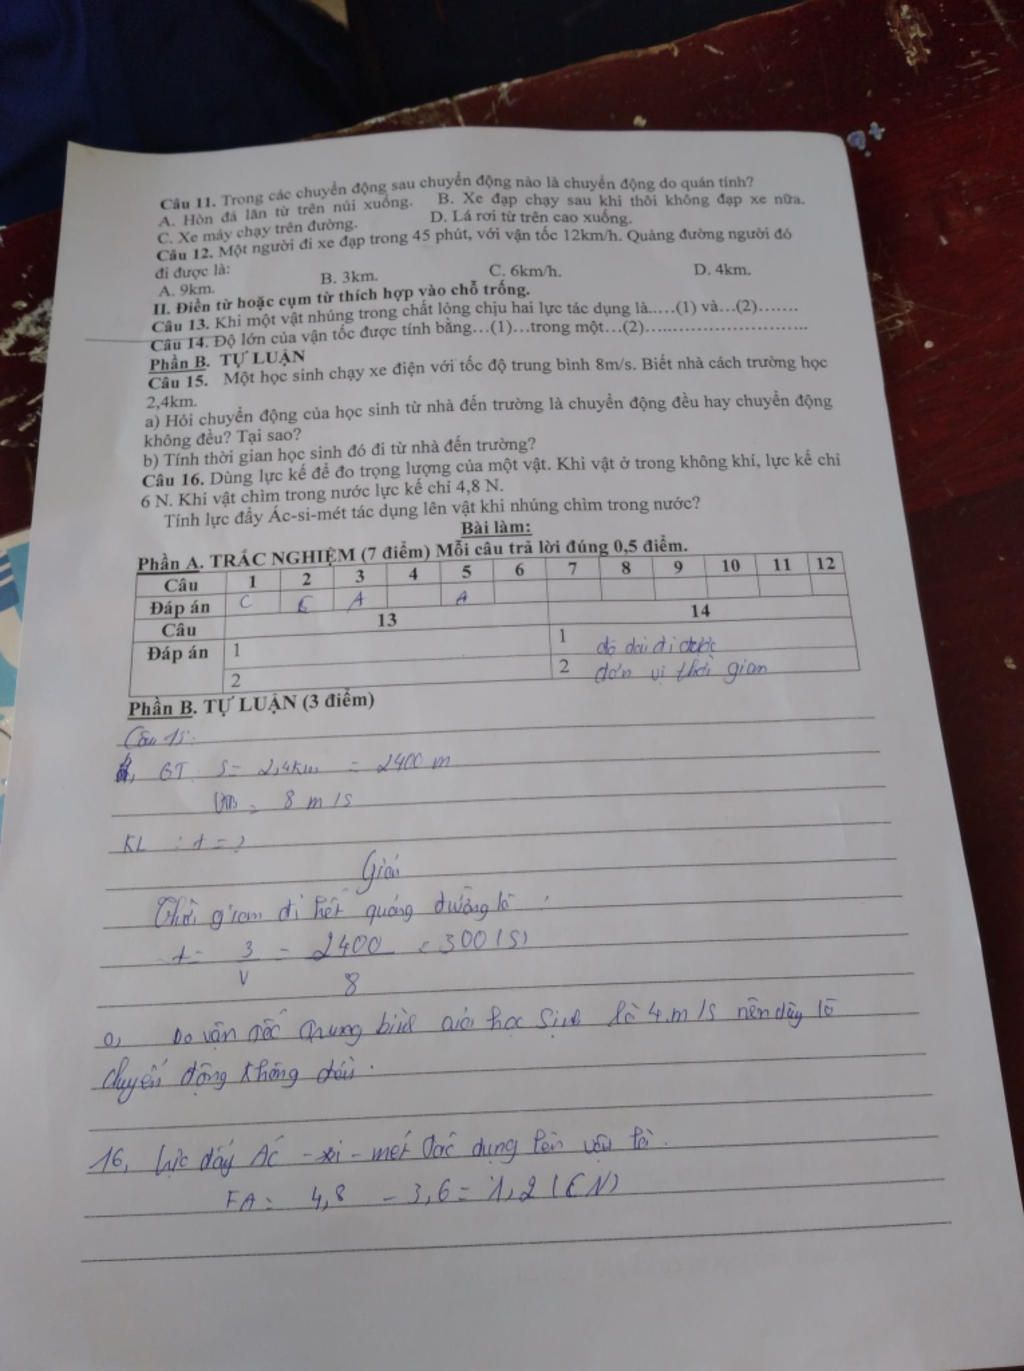 Câu 11. Trong các chuyển động sau chuyển động nào là chuyển động do quán tính?
A. Hòn đá lăn từ trên núi xuống. B. Xe đạp chạy sau khi thôi không đạp xe nữa.
C. Xe máy chạy trên đường. D. Lá rơi từ trên cao xuống.
Câu 12. Một người đi xe đạp trong 45 phút, với vận tốc 12km/h. Quảng đường người đó
đi được là:
A. 9km. B. 3km. C. 6km/h. D. 4km.
II. Điền từ hoặc cụm từ thích hợp vào chỗ trống.
Câu 13. Khi một vật nhúng trong chất lỏng chịu hai lực tác dụng là.....(1) và...(2).......
Câu 14. Độ lớn của vận tốc được tính bằng...(1)...trong một...(2)............................
Phần B. TỰ LUẬN
Câu 15. Một học sinh chạy xe điện với tốc độ trung bình 8m/s. Biết nhà cách trường học
2,4km.
a) Hỏi chuyển động của học sinh từ nhà đến trường là chuyển động đều hay chuyển động
không đều? Tại sao?
b) Tính thời gian học sinh đó đi từ nhà đến trường?
Câu 16. Dùng lực kế để đo trọng lượng của một vật. Khi vật ở trong không khí, lực kế chỉ
6 N. Khi vật chìm trong nước lực kế chỉ 4,8 N.
Tính lực đẩy Ác-si-mét tác dụng lên vật khi nhúng chìm trong nước?
Bài làm:
Phần A. TRẮC NGHIỆM (7 điểm) Mỗi câu trả lời đúng 0,5 điểm.
Câu 1 2 3 4 5 6 7 8 9 10 11 12
Đáp án C A A
Câu 13 14
Đáp án 1 1 độ dài đi được
2 2 đơn vị thời gian
Phần B. TỰ LUẬN (3 điểm)
Câu 15:
GT S = 2,4km = 2400 m
= 8 m/s
KL : t = ?
Giải
Thời gian đi hết quảng đường là :
t = S/V = 2400/8 = 300 (s)
a, Do vận tốc trung bình của học sinh là 4 m/s nên đây là
chuyển động không đều.
16, Lực đẩy Ác - si - mét tác dụng lên vật là.
FA = 4,8 - 3,6 = 1,2 (N)